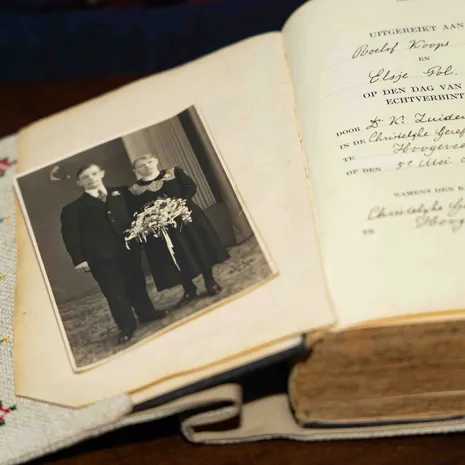 UITGEREIKT AAN
Roelof Koops
EN
Elsje Pol.
OP DEN DAG VAN
ECHTVERBINT
DOOR Ds K. Zuider
IN DE Christelijke Geref
TE Hoogeve
OP DEN 5e Mei
NAMENS DEN K
Christelijke G
TE Hoog